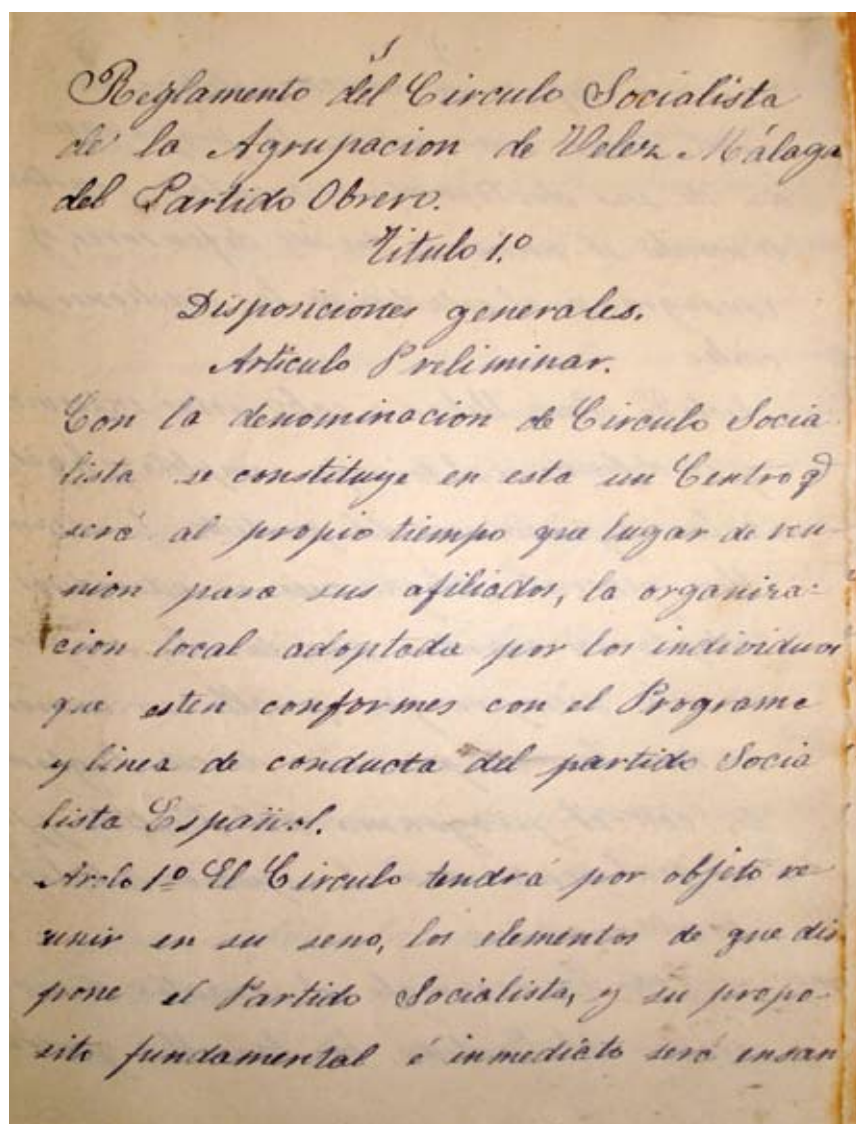 Reglamento del Circulo Socialista
de la Agrupacion de Velez Málaga
del Partido Obrero.
Titulo 1.º
Disposiciones generales.
Articulo Preliminar.
Con la denominacion de Circulo Socia
lista se constituye en esta un Centro q
será al propio tiempo que lugar de reu-
nion para sus afiliados, la organiza-
cion local adoptada por los individuos
que esten conformes con el Programa
y linea de conducta del partido Socia
lista Español.
Artlo 1º El Circulo tendrá por objeto re-
unir en su seno, los elementos de que dis
pone el Partido Socialista, y su propo-
sito fundamental é inmediato será ensan